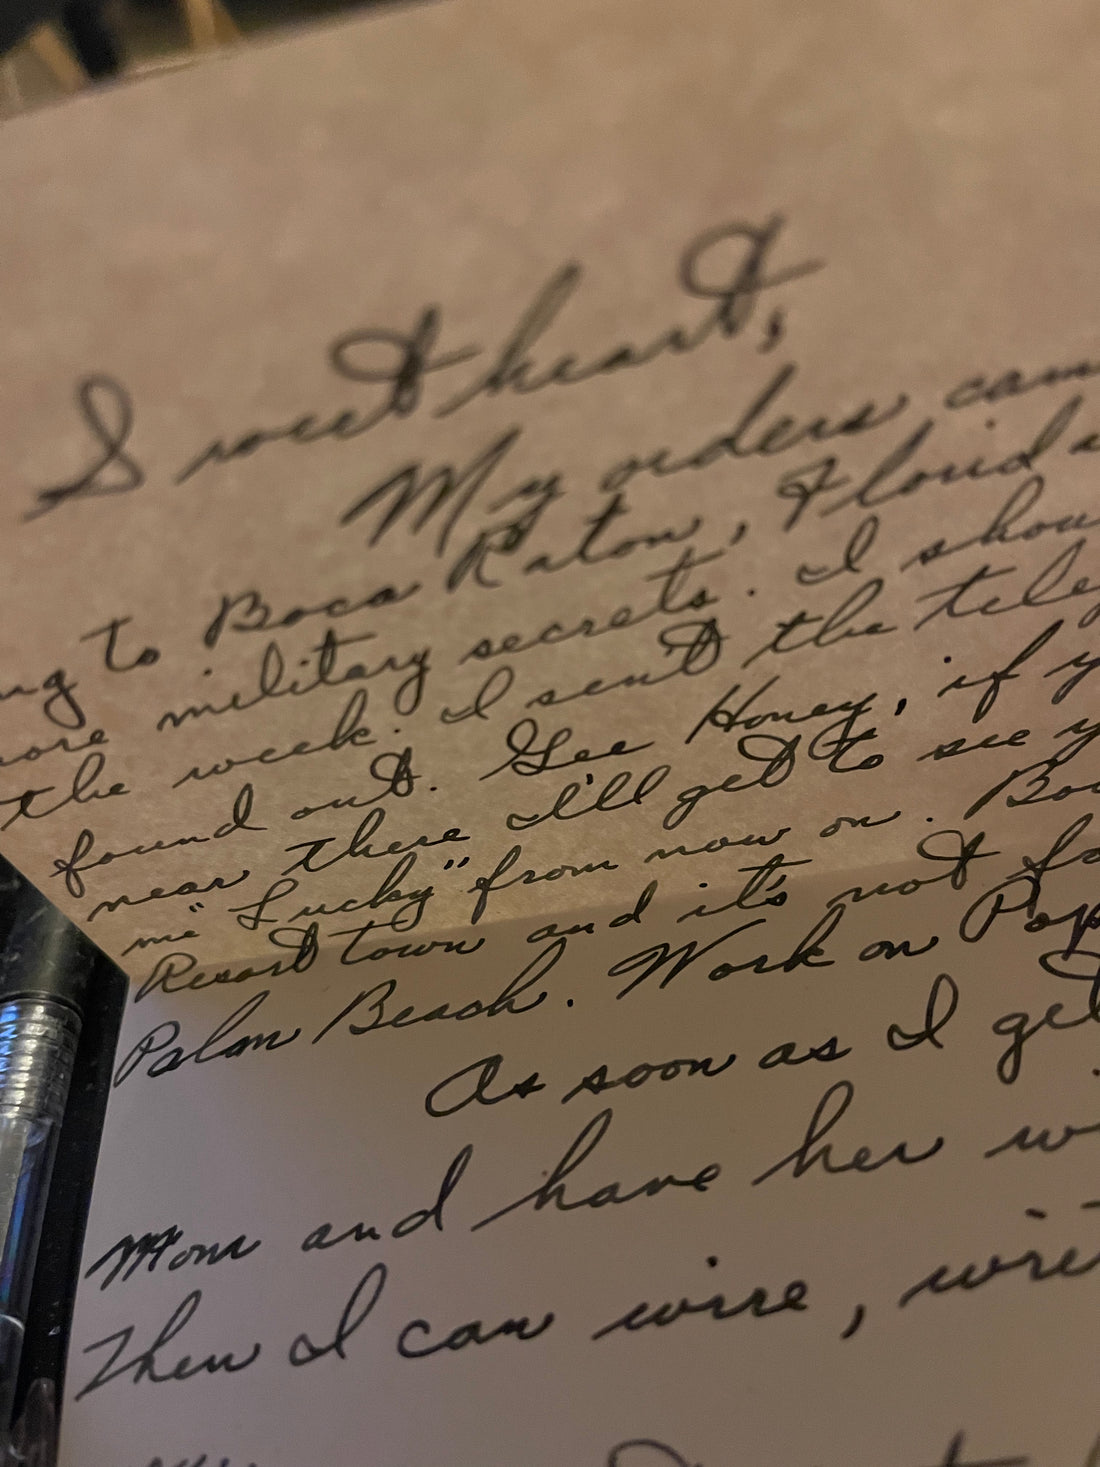 Sweetheart,
My orders cam
ng to Boca Raton, Florida
ore military secrets. I shou
the week. I sent the tele
found out. Gee Honey, if y
near there I'll get to see y
me "Lucky" from now on. Boc
Resort town and it's not fa
Palm Beach. Work on Pop
As soon as I get
Mom and have her wi
Then I can wire, wri